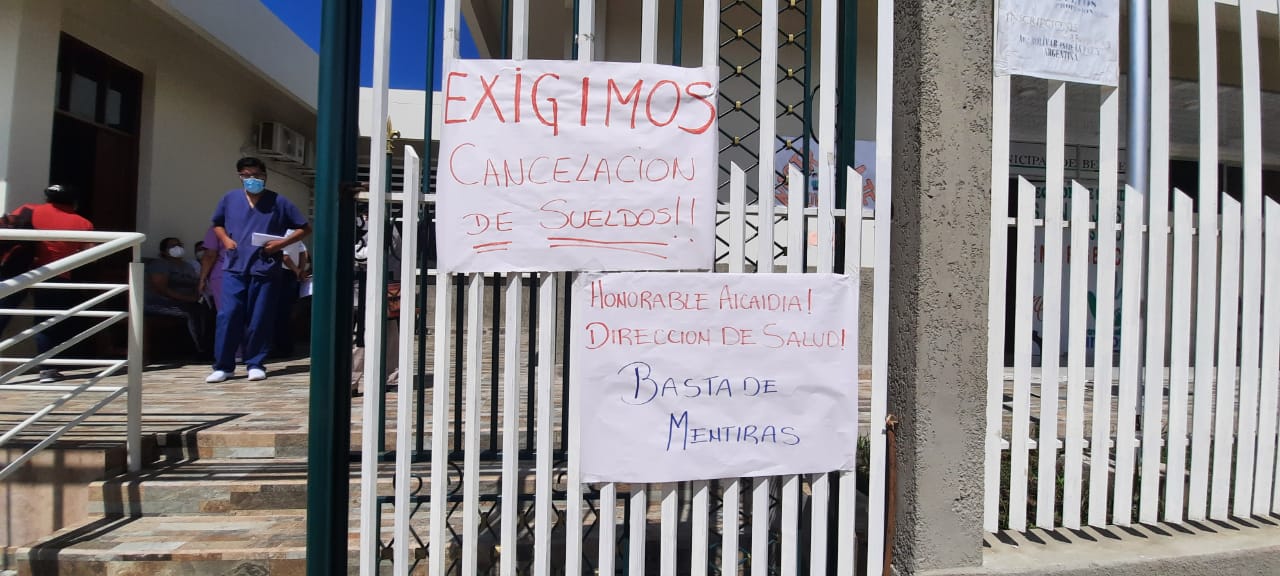 EXIGIMOS
CANCELACION
DE SUELDOS!!
HONORABLE ALCALDIA!
DIRECCION DE SALUD!
BASTA DE
MENTIRAS
INSCRIPCIONES
AV. BOLIVAR
ARGENTINA
NICIPAL DE BE